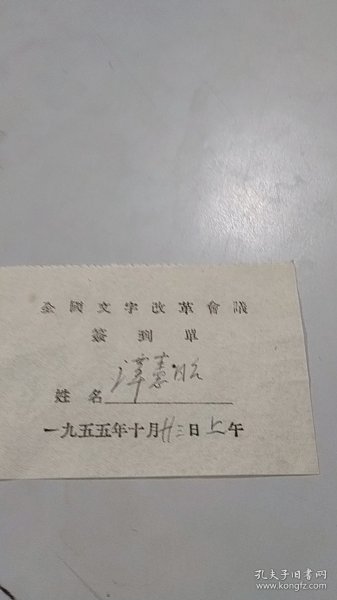 全國文字改革會議
簽到單
姓名 谭憲昭
一九五五年十月廿三日上午
孔夫子旧书网
www.kongfz.com